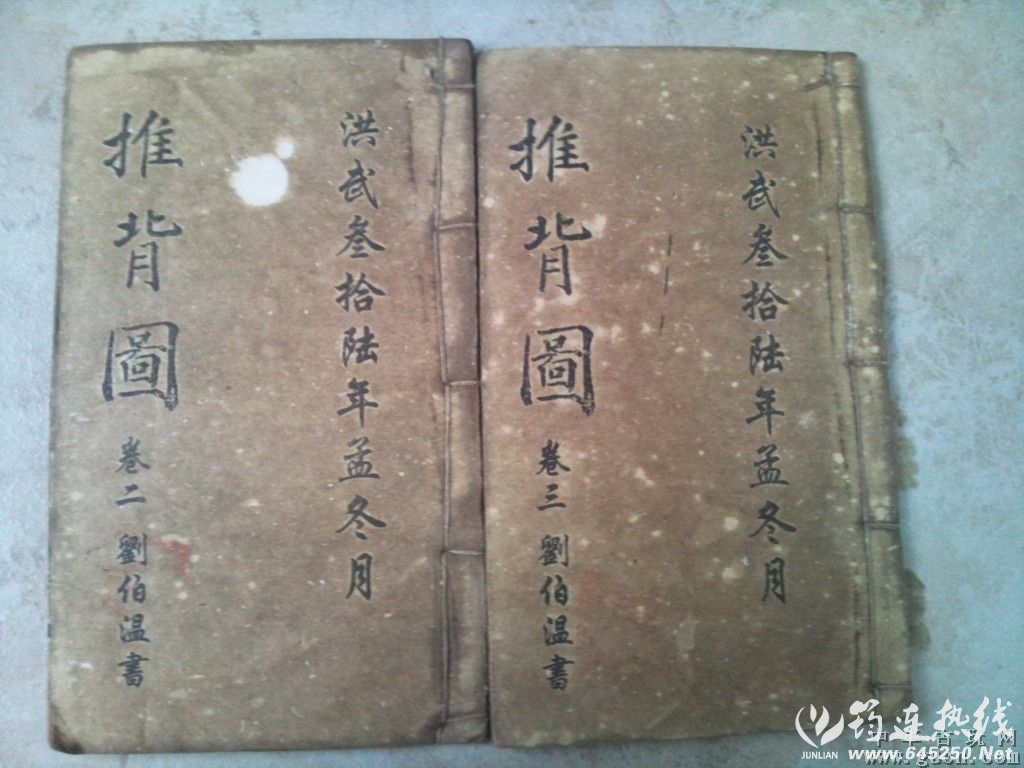 洪武叁拾陆年孟冬月
推背圖 卷二 劉伯温書
洪武叁拾陆年孟冬月
推背圖 卷三 劉伯温書
筠连热线
JUNLIAN www.645250.Net